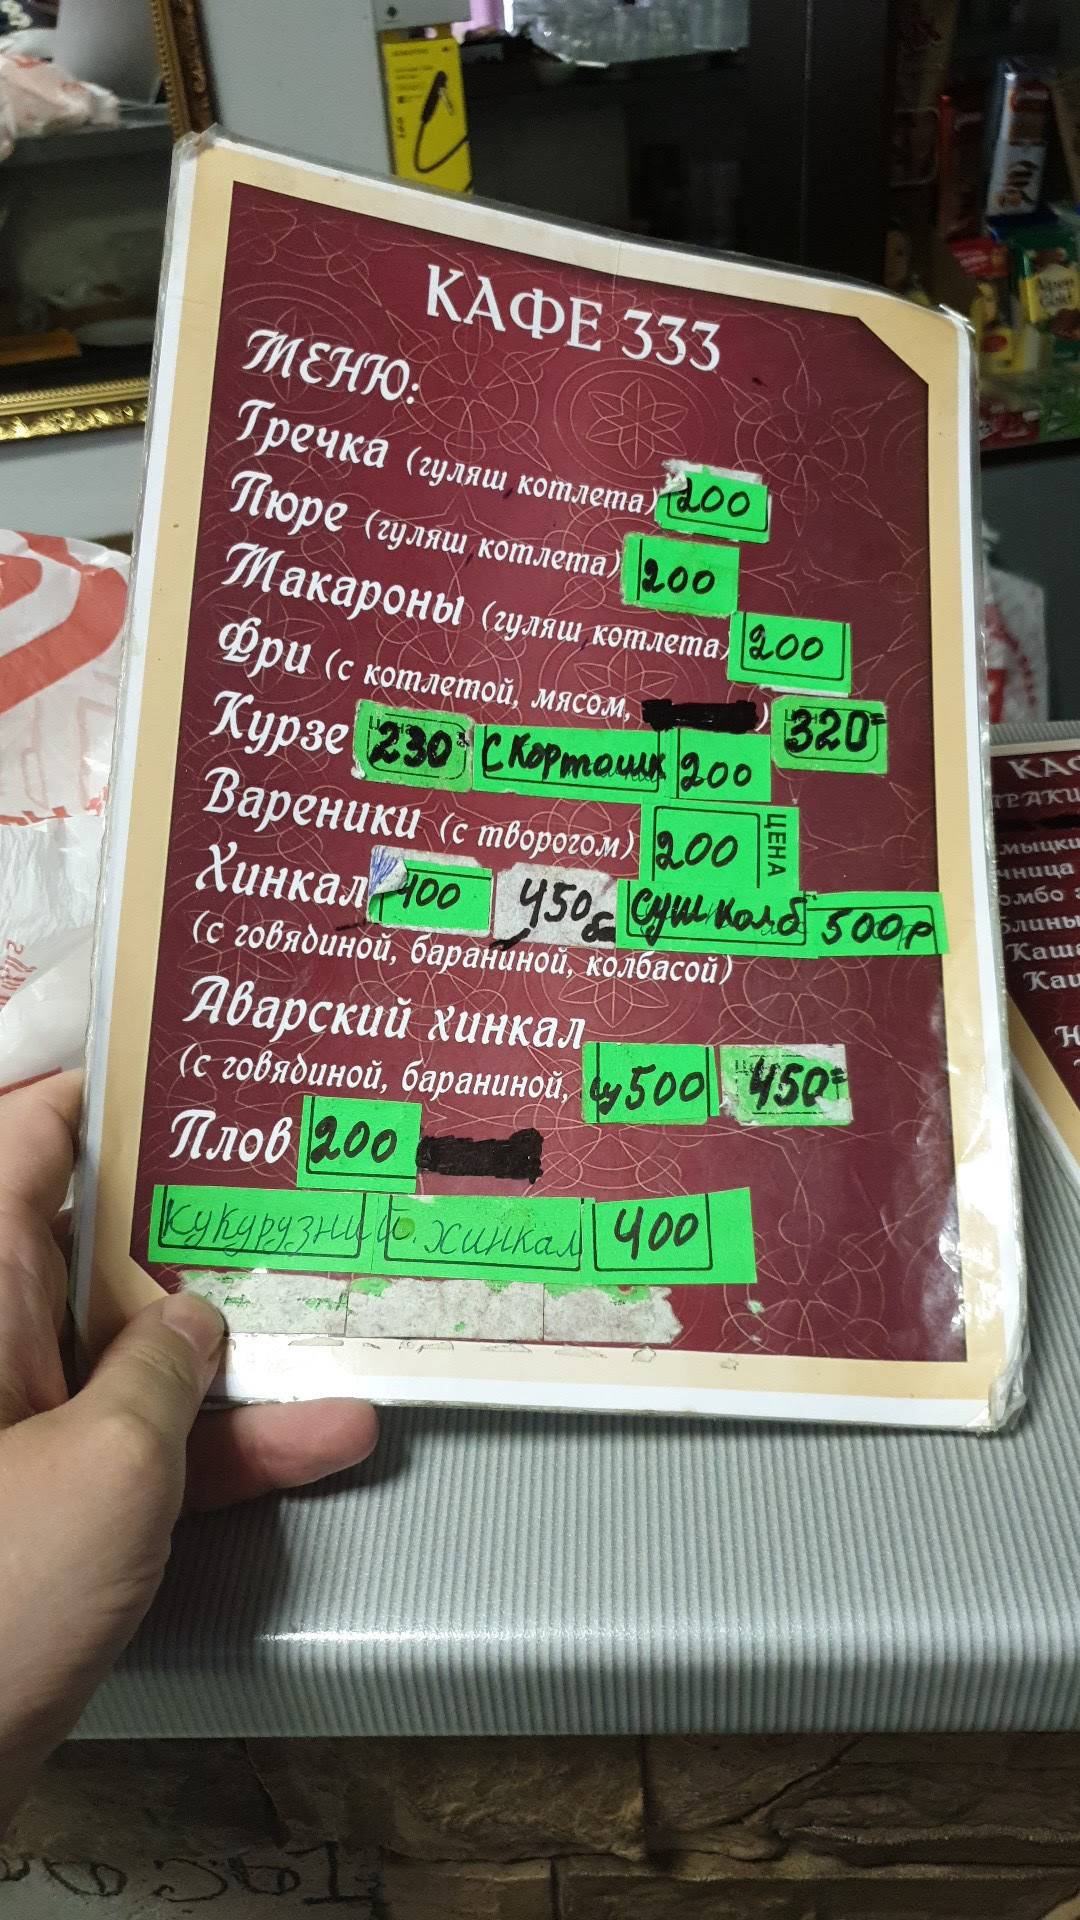 КАФЕ 333
МЕНЮ:
Гречка (гуляш котлета) 200
Пюре (гуляш котлета) 200
Макароны (гуляш котлета) 200
Фри (с котлетой, мясом, ) 320=
Курзе 230 С Кортошк 200
Вареники (с творогом) 200 ЦЕНА
Хинкал 400 450 б суш колб 500р
(с говядиной, бараниной, колбасой)
Аварский хинкал
(с говядиной, бараниной, 500 450=
Плов 200
Кукурузний хинкал 400
Alpen Gold
КАФ
мыцки
чница
омбо
блины
Каша
Каш